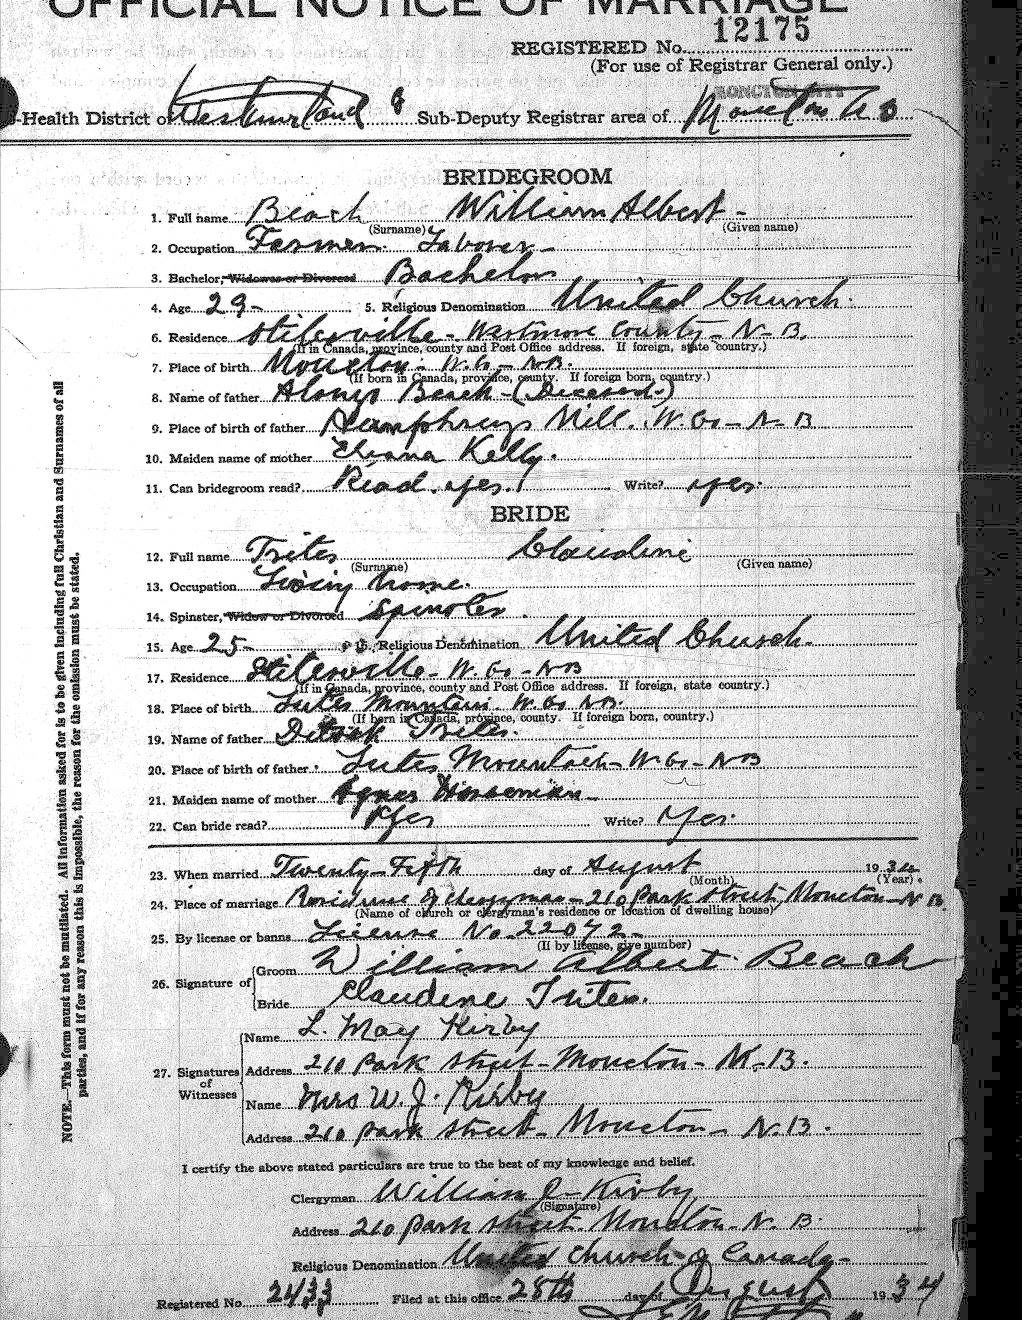 OFFICIAL NOTICE OF MARRIAGE
REGISTERED No. 12175
(For use of Registrar General only.)
MONCTON CITY
-Health District of Westmorland Sub-Deputy Registrar area of Moncton N B
BRIDEGROOM
1. Full name Beach William Albert -
(Surname) (Given name)
2. Occupation Farmer Laborer -
3. Bachelor, Widower or Divorced Bachelor
4. Age 29- 5. Religious Denomination United Church.
6. Residence Stilesville - Westmore County - N - B.
(If in Canada, province, county and Post Office address. If foreign, state country.)
7. Place of birth Moncton - W. Co - NB.
(If born in Canada, province, county. If foreign born, country.)
8. Name of father Alonzo Beach - (Deceased.)
9. Place of birth of father Humphreys Mill. W. Co - N - B
10. Maiden name of mother Kelly.
11. Can bridegroom read? Read. yes. Write? yes.
BRIDE
12. Full name Trites Claudine
(Surname) (Given name)
13. Occupation Living home.
14. Spinster, Widow or Divorced Spinster
15. Age 25- 16. Religious Denomination United Church.
17. Residence Stilesville - W. Co - NB
(If in Canada, province, county and Post Office address. If foreign, state country.)
18. Place of birth Lutes Mountain. W. Co NB.
(If born in Canada, province, county. If foreign born, country.)
19. Name of father Trites.
20. Place of birth of father Lutes Mountain - W Co - NB
21. Maiden name of mother Agnes Horseman
22. Can bride read? Yes Write? Yes.
23. When married Twenty-Fifth day of August 1934
(Month) (Year)
24. Place of marriage Residence of Clergyman - 210 Park Street, Moncton - N B.
(Name of church or clergyman's residence or location of dwelling house)
25. By license or banns License No. 22072 -
(If by license, give number)
26. Signature of
Groom William Albert Beach
Bride Claudine Trites.
27. Signatures of Witnesses
Name L. May Kirby
Address 210 Park Street - Moncton - N. B.
Name Mrs W. J. Kirby
Address 210 Park Street - Moncton - N. B.
I certify the above stated particulars are true to the best of my knowledge and belief.
Clergyman William J. Kirby
(Signature)
Address 210 Park Street. Moncton - N. B.
Religious Denomination United Church of Canada -
Registered No. 2433 Filed at this office 28th day of August 1934
NOTE.—This form must not be mutilated. All information asked for is to be given including full Christian and Surnames of all
parties, and if for any reason this is impossible, the reason for the omission must be stated.